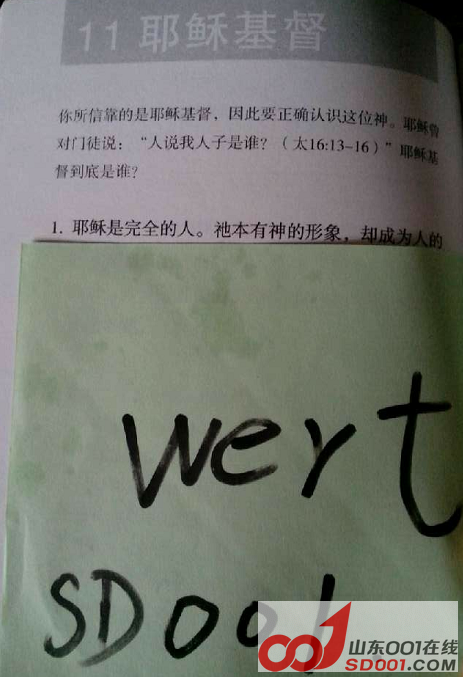 11 耶稣基督
你所信靠的是耶稣基督，因此要正确认识这位神。耶稣曾
对门徒说：“人说我人子是谁？（太16:13-16）”耶稣基
督到底是谁？
1. 耶稣是完全的人。祂本有神的形象，却成为人的
wert
SD001
山东001在线
SD001.COM